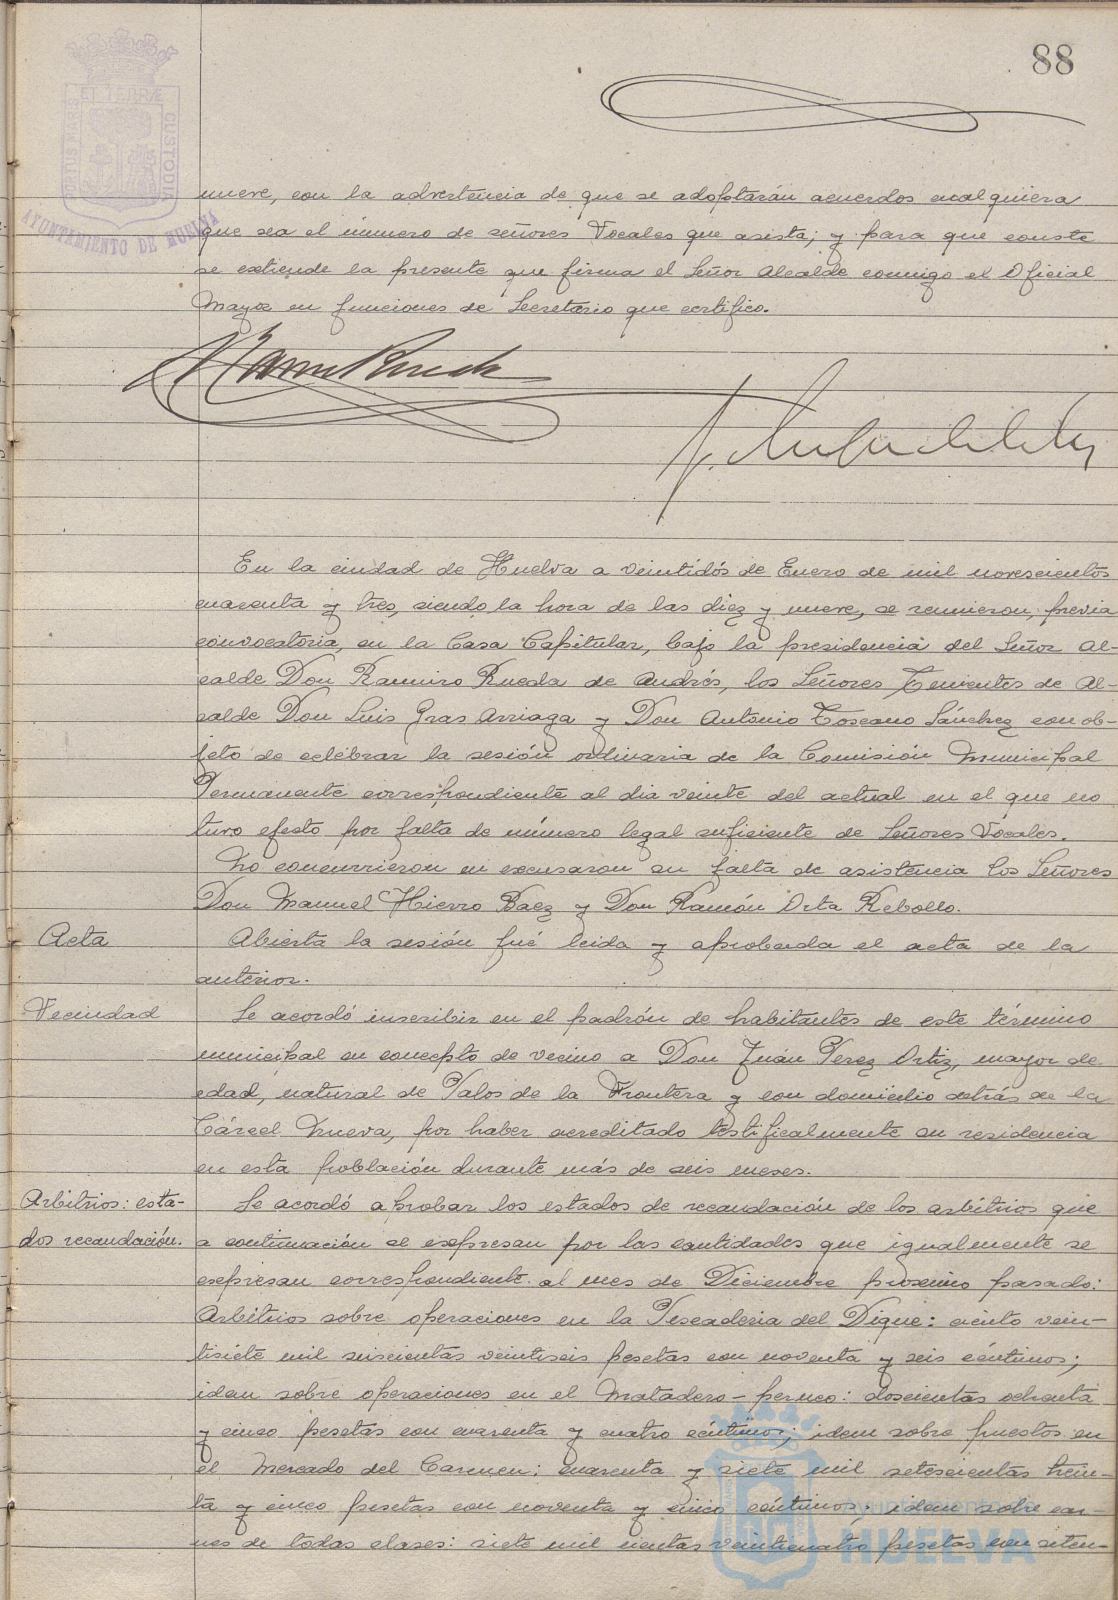 88
PORTUS MARIS ET TERRÆ CUSTODIA
AYUNTAMIENTO DE HUELVA
nueve, con la advertencia de que se adoptarán acuerdos cualquiera
que sea el número de señores Vocales que asista; y para que conste
se extiende la presente que firma el Señor Alcalde conmigo el Oficial
Mayor en funciones de Secretario que certifico.
Ramiro Rueda
En la ciudad de Huelva a veintidós de Enero de mil novescientos
cuarenta y tres, siendo la hora de las diez y nueve, se reunieron, previa
convocatoria, en la Casa Capitular, bajo la presidencia del Señor Al-
calde Don Ramiro Rueda de Andrés, los Señores Tenientes de Al-
calde Don Luis Gras Arriaga y Don Antonio Toscano Sánchez con ob-
jeto de celebrar la sesión ordinaria de la Comisión Municipal
Permanente correspondiente al dia veinte del actual en el que no
tuvo efecto por falta de número legal suficiente de Señores Vocales.
No concurrieron ni excusaron su falta de asistencia los Señores
Don Manuel Hierro Baez y Don Ramón Orta Rebollo.
Acta
Abierta la sesión fué leida y aprobada el acta de la
anterior.
Vecindad
Se acordó inscribir en el padrón de habitantes de este término
municipal en concepto de vecino a Don Juán Perez Ortiz, mayor de
edad, natural de Palos de la Frontera y con domicilio detrás de la
Cárcel Nueva, por haber acreditado testificalmente su residencia
en esta población durante más de seis meses.
Arbitrios: esta-
dos recaudación.
Se acordó aprobar los estados de recaudación de los arbitrios que
a continuación se expresan por las cantidades que igualmente se
expresan correspondiente al mes de Diciembre proximo pasado:
Arbitrios sobre operaciones en la Pescaderia del Dique: ciento vein-
tisiete mil seiscientas veintiseis pesetas con noventa y seis céntimos;
idem sobre operaciones en el Matadero-perneo: doscientas ochenta
y cinco pesetas con cuarenta y cuatro céntimos; idem sobre puestos en
el Mercado del Carmen: cuarenta y siete mil setescientas trein-
ta y cinco pesetas con noventa y cinco céntimos; idem sobre car-
nes de todas clases: siete mil cientas veinticuatro pesetas con seten-
Ayuntamiento de
HUELVA